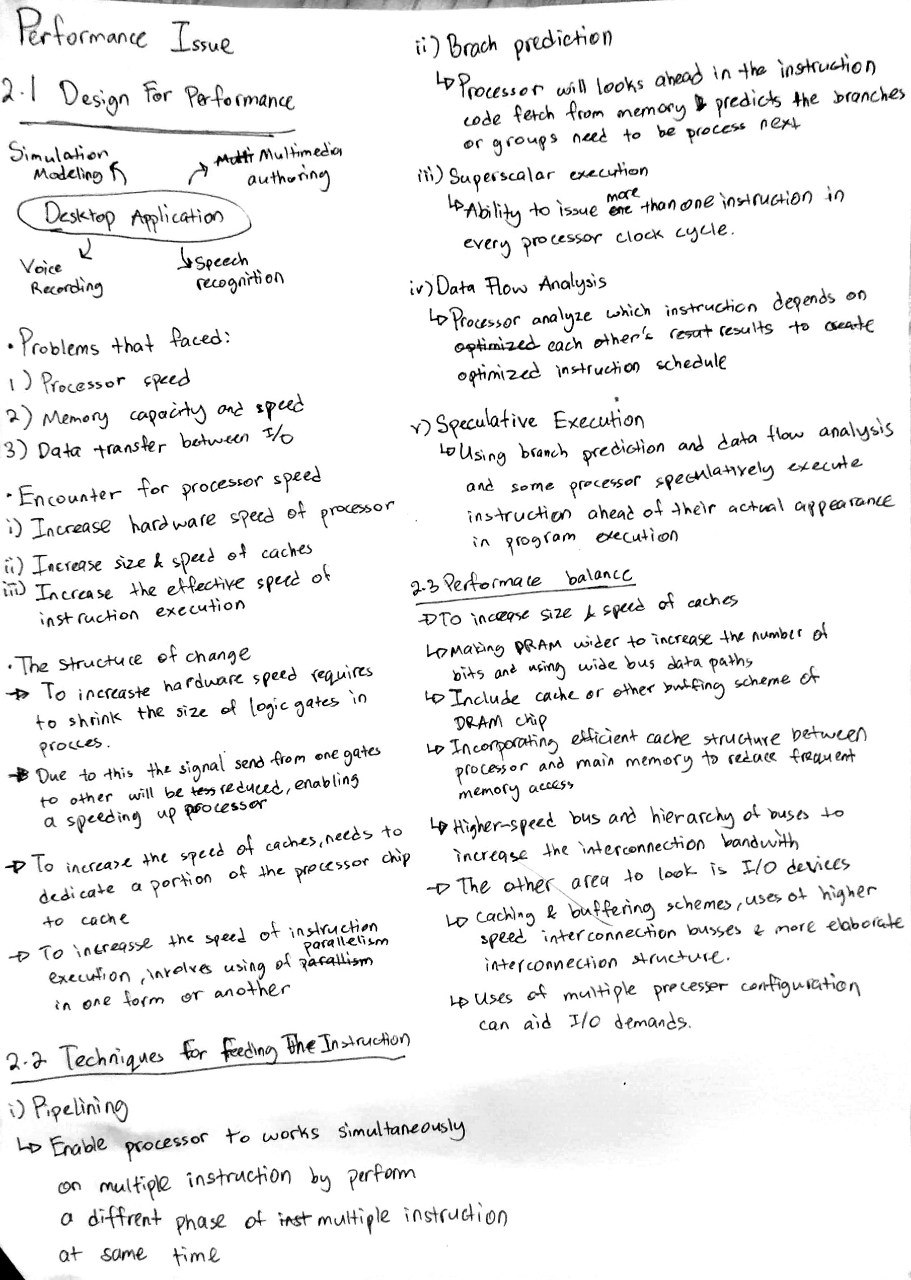 Performance Issue
2.1 Design For Performance
Simulation
Modeling
Multi Multimedia
authoring
Desktop Application
Voice
Recording
Speech
recognition
• Problems that faced:
1) Processor speed
2) Memory capacity and speed
3) Data transfer between I/O
• Encounter for processor speed
i) Increase hardware speed of processor
ii) Increase size & speed of caches
iii) Increase the effective speed of
instruction execution
• The structure of change
→ To increaste hardware speed requires
to shrink the size of logic gates in
procces.
→ Due to this the signal send from one gates
to other will be less reduced, enabling
a speeding up processor
→ To increase the speed of caches, needs to
dedicate a portion of the processor chip
to cache
→ To increasse the speed of instruction
parallelism
execution, involves using of parallism
in one form or another
2.2 Techniques for feeding The Instruction
i) Pipelining
↳ Enable processor to works simultaneously
on multiple instruction by perform
a diffrent phase of inst multiple instruction
at same time
ii) Brach prediction
↳ Processor will looks ahead in the instruction
code fetch from memory & predicts the branches
or groups need to be process next
iii) Superscalar execution
more
↳ Ability to issue one than one instruction in
every processor clock cycle.
iv) Data Flow Analysis
↳ Processor analyze which instruction depends on
optimized each other's resut results to create
optimized instruction schedule
v) Speculative Execution
↳ Using branch prediction and data flow analysis
and some processor speculatively execute
instruction ahead of their actual appearance
in program execution
2.3 Performace balance
→ To increase size & speed of caches
↳ Making DRAM wider to increase the number of
bits and using wide bus data paths
↳ Include cache or other buffing scheme of
DRAM chip
↳ Incorporating efficient cache structure between
processor and main memory to reduce frequent
memory access
↳ Higher-speed bus and hierarchy of buses to
increase the interconnection bandwith
→ The other area to look is I/O devices
↳ Caching & buffering schemes, uses of higher
speed interconnection busses & more elaborate
interconnection structure.
↳ Uses of multiple processor configuration
can aid I/O demands.